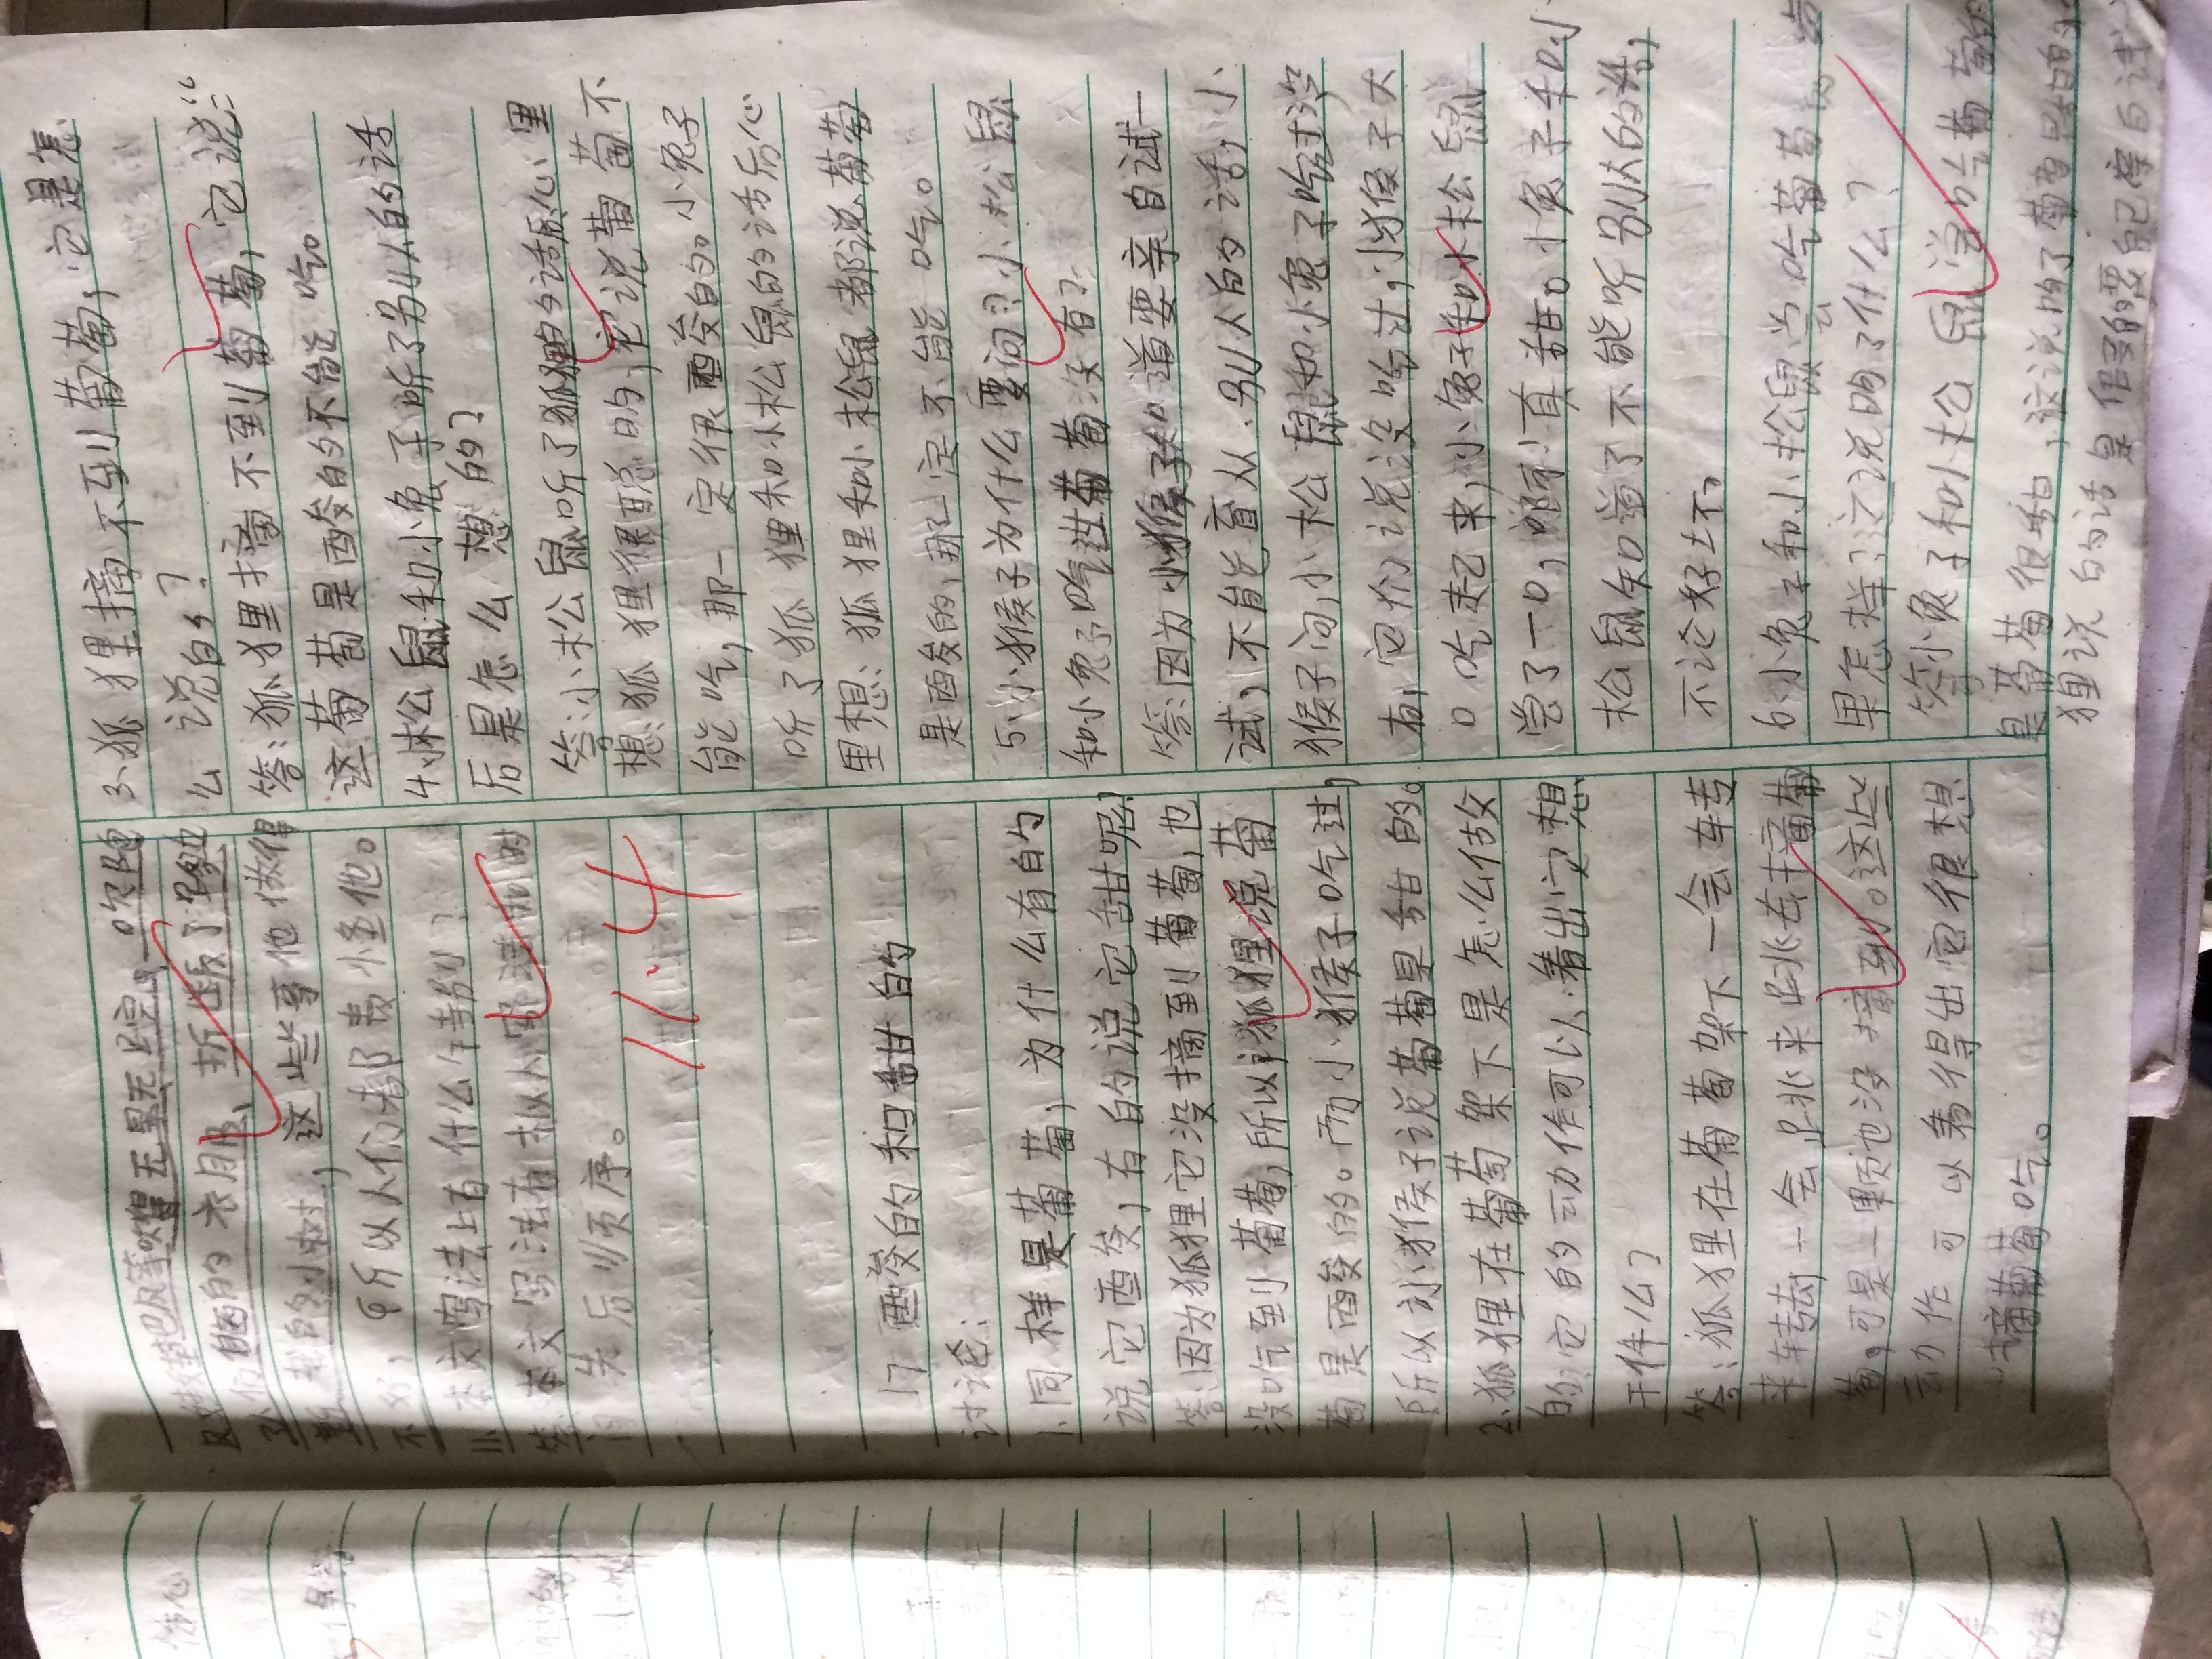 一次随
折断了身边
的衣服,
栽的小树,这些事他做得
不好,所以人们都责怪他。
11.本文写法上有什么特别?
答:本文写法有
先后顺序。
11.4
17 酸的和甜的
讨论:
1、同样是葡萄,为什么有的
说它酸,有的说它甜呢?
答:因为狐狸它没摘到葡萄,也
没吃到葡萄,所以狐狸说葡
萄是酸的。而小猴子吃过,
所以小猴子说葡萄是甜的。
2、狐狸在葡萄架下是怎么做
的,它的动作可以看出它想
干什么?
答:狐狸在葡萄架下一会转
来转去,一会跳来跳去摘葡
萄。可是一颗也没摘到。这些
动作可以看得出它很想
摘葡萄吃。
3、狐狸摘不到葡萄,它是怎
么说的?
答:狐狸摘不到葡萄,它说:“
这葡萄是酸的不能吃。
4、小松鼠和小兔子听了别人的话
后是怎么想的?
答:小松鼠听了狐狸的话后心里
想:狐狸很聪的,它说葡萄不
能吃,那一定很酸的。小兔子
听了狐狸和小松鼠的话后心
里想:狐狸和小松鼠都说葡萄
是酸的,那一定不能吃。
5、小猴子为什么要问:小松鼠
和小兔子吃过葡萄没有?
答:因为小猴子知道要亲自试一
试,不能盲从别人的话,小
猴子问小松鼠和小兔子吃过没
有,它们说没吃过,小猴子大
口吃起来,小兔子和小松鼠
尝了一口,啊!真甜。小兔子和小
松鼠知道了不能听别人的话,
不论好坏,
6、小兔子和小松鼠尝吃葡萄的结
果怎样?这说明了什么?
答:小兔子和小松鼠尝的葡萄的
是葡萄很甜,这说明了
狸说的话是假的要自己亲自试